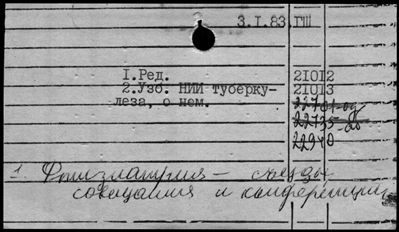 3.I.83.ГШ
I.Ред. 21012
2.Узб. НИИ туберку- 21013
леза, о нем.
22735-об
22940
1. Фтизиатрия — съезды
совещания и конференции